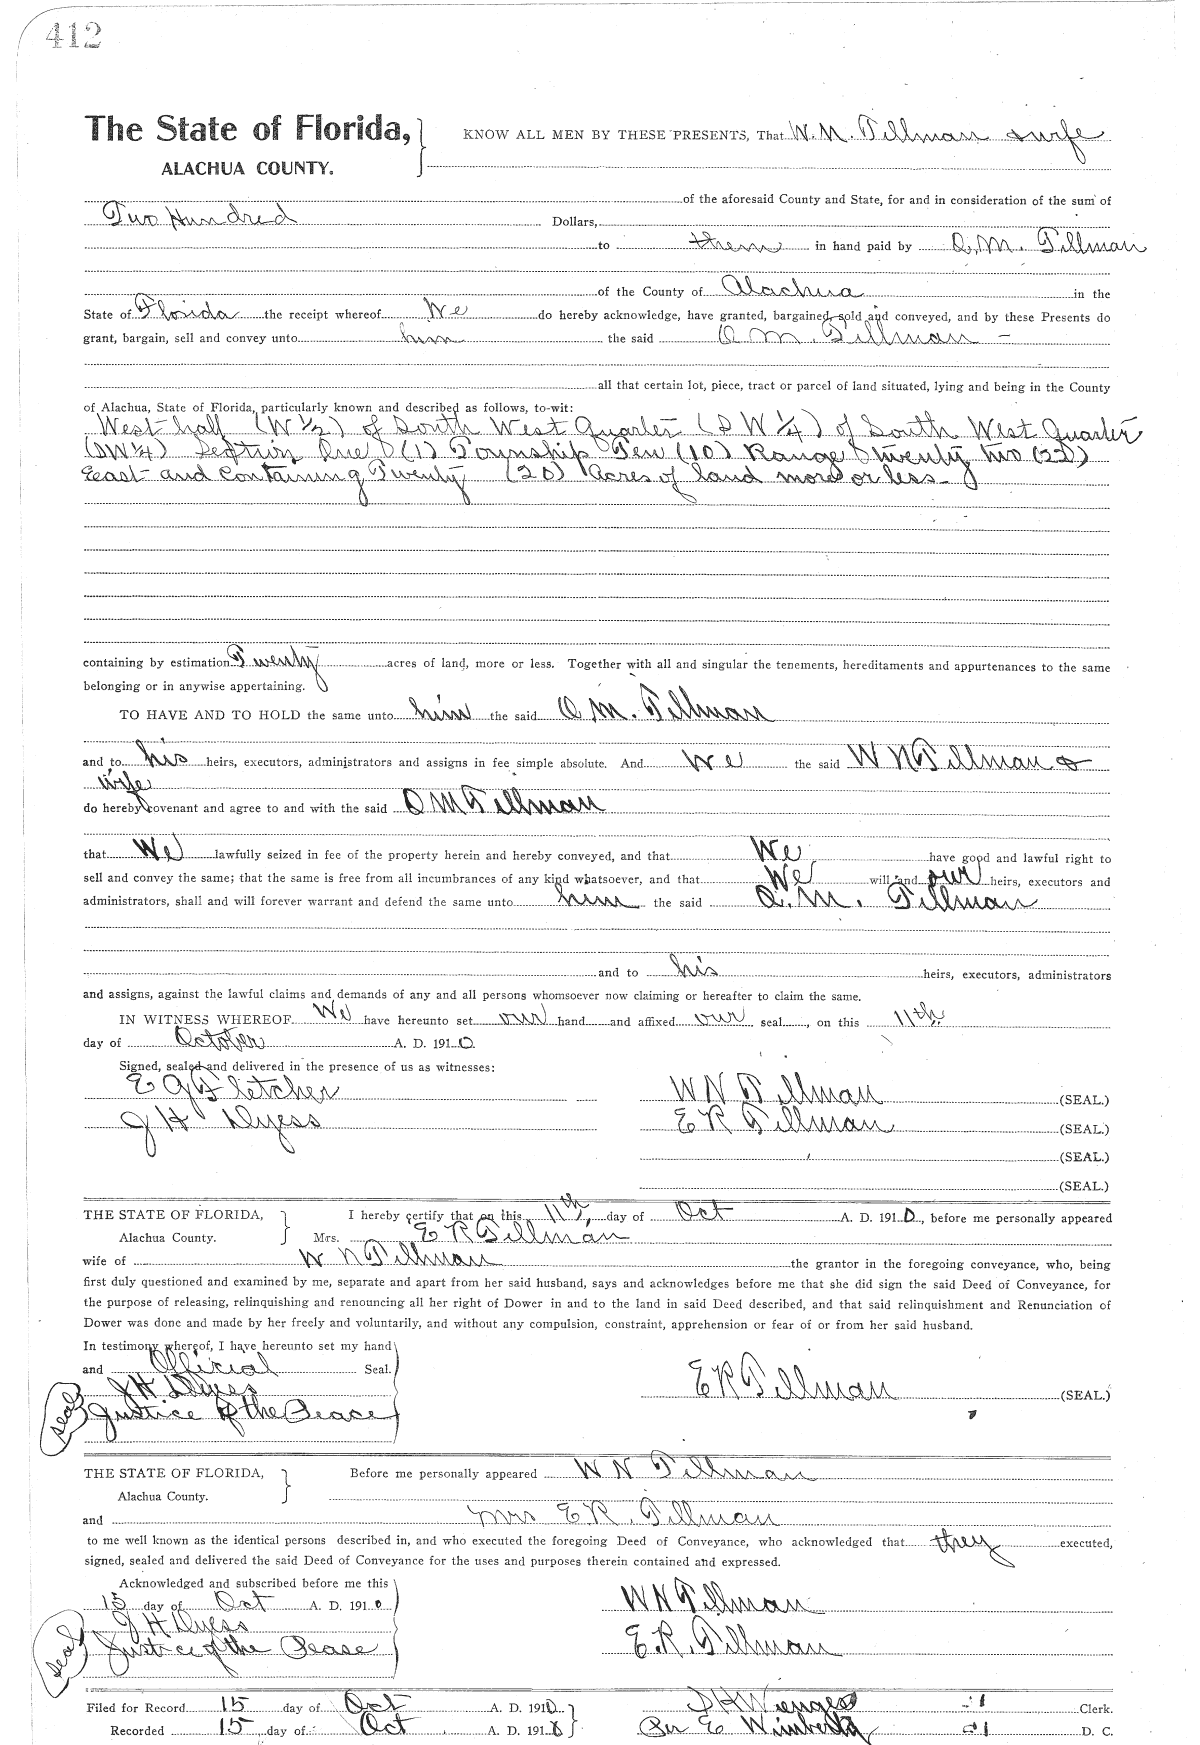 412
The State of Florida, KNOW ALL MEN BY THESE PRESENTS, That W. N. Tillman & wife
ALACHUA COUNTY.
of the aforesaid County and State, for and in consideration of the sum of
Two Hundred Dollars,
to them in hand paid by O. M. Tillman
of the County of Alachua in the
State of Florida the receipt whereof We do hereby acknowledge, have granted, bargained, sold and conveyed, and by these Presents do
grant, bargain, sell and convey unto him the said O. M. Tillman -
all that certain lot, piece, tract or parcel of land situated, lying and being in the County
of Alachua, State of Florida, particularly known and described as follows, to-wit:
West half (W 1/2) of South West Quarter (SW 1/4) of South West Quarter
(SW 1/4) Section One (1) Township Ten (10) Range twenty two (22)
East and Containing Twenty (20) Acres of land more or less-
containing by estimation Twenty acres of land, more or less. Together with all and singular the tenements, hereditaments and appurtenances to the same
belonging or in anywise appertaining.
TO HAVE AND TO HOLD the same unto him the said O. M. Tillman
and to his heirs, executors, administrators and assigns in fee simple absolute. And We the said W N Tillman &
wife
do hereby covenant and agree to and with the said O M Tillman
that We lawfully seized in fee of the property herein and hereby conveyed, and that We have good and lawful right to
sell and convey the same; that the same is free from all incumbrances of any kind whatsoever, and that We will and our heirs, executors and
administrators, shall and will forever warrant and defend the same unto him the said O. M. Tillman
and to his heirs, executors, administrators
and assigns, against the lawful claims and demands of any and all persons whomsoever now claiming or hereafter to claim the same.
IN WITNESS WHEREOF We have hereunto set our hand and affixed our seal, on this 11th
day of October A. D. 1910.
Signed, sealed and delivered in the presence of us as witnesses:
E G Fletcher W N Tillman (SEAL.)
J H Dyess E R Tillman (SEAL.)
(SEAL.)
(SEAL.)
THE STATE OF FLORIDA, I hereby certify that on this 11th, day of Oct A. D. 1910, before me personally appeared
Alachua County. Mrs. E R Tillman
wife of W N Tillman the grantor in the foregoing conveyance, who, being
first duly questioned and examined by me, separate and apart from her said husband, says and acknowledges before me that she did sign the said Deed of Conveyance, for
the purpose of releasing, relinquishing and renouncing all her right of Dower in and to the land in said Deed described, and that said relinquishment and Renunciation of
Dower was done and made by her freely and voluntarily, and without any compulsion, constraint, apprehension or fear of or from her said husband.
In testimony whereof, I have hereunto set my hand
and Official Seal.
J H Dyess E R Tillman (SEAL.)
Seal Justice of the Peace
THE STATE OF FLORIDA, Before me personally appeared W N Tillman
Alachua County.
and Mrs E R. Tillman
to me well known as the identical persons described in, and who executed the foregoing Deed of Conveyance, who acknowledged that they executed,
signed, sealed and delivered the said Deed of Conveyance for the uses and purposes therein contained and expressed.
Acknowledged and subscribed before me this
15 day of Oct A. D. 1910 W N Tillman
J H Dyess
Seal Justice of the Pease E. R. Tillman
Filed for Record 15 day of Oct A. D. 1910 S H Wienges Clerk.
Recorded 15 day of Oct A. D. 1910 Per E Wimberly D. C.